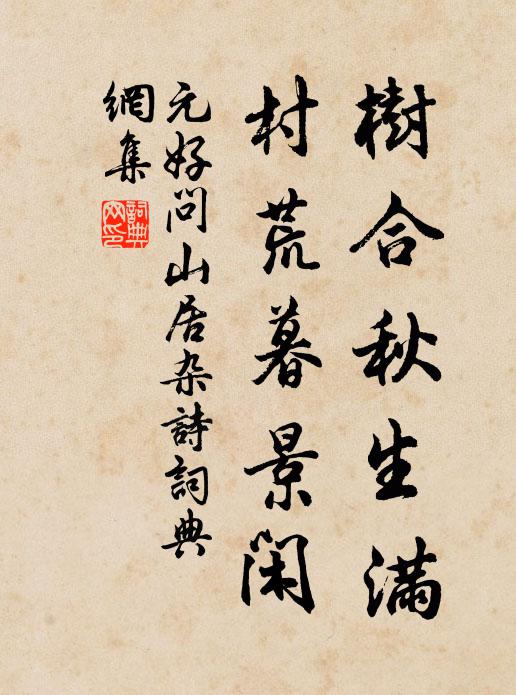 樹合秋生滿
村荒暮景閑
元好問山居杂詩詞典
網集
詞典
网印